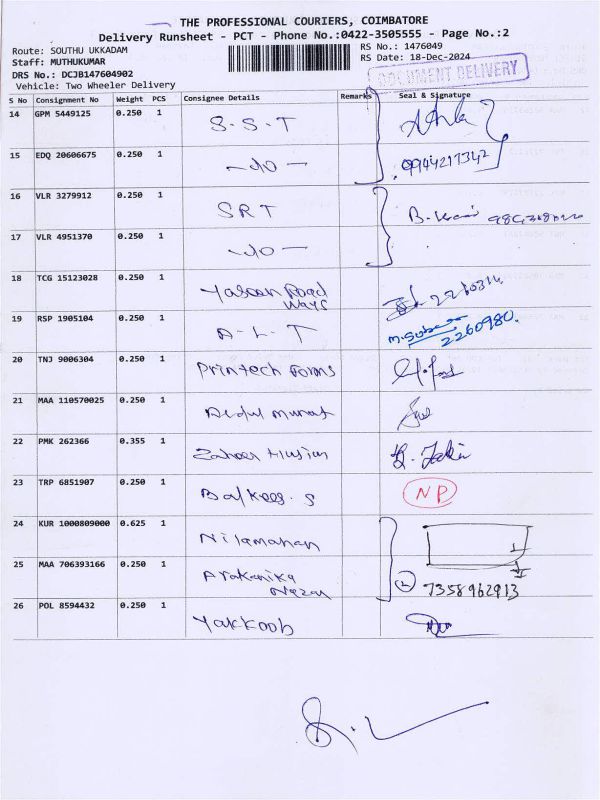 THE PROFESSIONAL COURIERS, COIMBATORE
Delivery Runsheet - PCT - Phone No.:0422-3505555 - Page No.:2
Route: SOUTHU UKKADAM RS No.: 1476049
Staff: MUTHUKUMAR RS Date: 18-Dec-2024
DRS No.: DCJB147604902 DOCUMENT DELIVERY
Vehicle: Two Wheeler Delivery
S No Consignment No Weight PCS Consignee Details Remarks Seal & Signature
14 GPM 5449125 0.250 1 S.S.T
15 EDQ 20606675 0.250 1 -do- 09944217342
16 VLR 3279912 0.250 1 SRT
17 VLR 4951370 0.250 1 -do-
18 TCG 15123028 0.250 1 Road
ways
19 RSP 1905104 0.250 1 A-L-T 2260980
20 TNJ 9006304 0.250 1 Printech Forms
21 MAA 110570025 0.250 1 Abdul
22 PMK 262366 0.355 1
23 TRP 6851907 0.250 1 NP
24 KUR 1000809000 0.625 1
25 MAA 706393166 0.250 1 2 7358962913
26 POL 8594432 0.250 1 Yakkoob